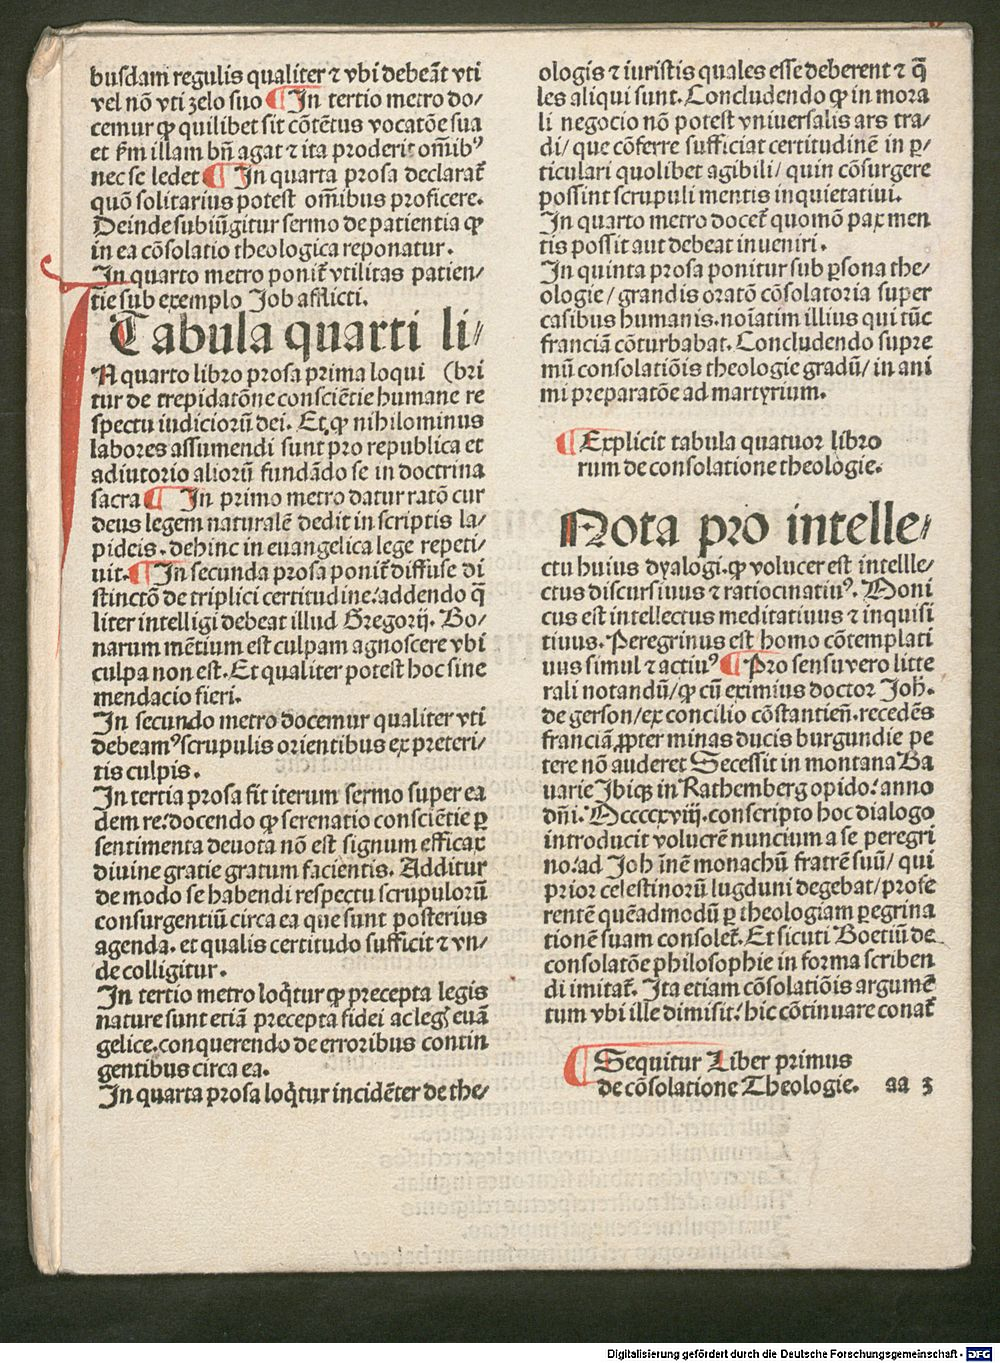 busdam regulis qualiter ⁊ vbi debeāt vti
vel nō vti zelo suo ¶ In tertio metro do⸗
cemur ꝙ quilibet sit cōtētus vocatōe sua
et ẜm illam bn̄ agat ⁊ ita proderit om̄ibꝰ
nec se ledet ¶ In quarta prosa declarat᷑
quō solitarius potest om̄ibus proficere.
Deinde subiūgitur sermo de patientia ꝙ
in ea cōsolatio theologica reponatur.
In quarto metro ponit᷑ vtilitas patien⸗
tie sub exemplo Job afflicti.
Tabula quarti li⸗
IN quarto libro prosa prima loqui (bri
tur de trepidatōne consciētie humane re
spectu iudiciorū dei. Et ꝙ nihilominus
labores assumendi sunt pro republica et
adiutorio aliorū fundādo se in doctrina
sacra ¶ In primo metro datur ratō cur
deus legem naturalē dedit in scriptis la⸗
pideis. dehinc in euangelica lege repeti⸗
uit. ¶ In secunda prosa ponit᷑ diffuse di
stinctō de triplici certitudine: addendo q̄
liter intelligi debeat illud Gregorij. Bo⸗
narum mētium est culpam agnoscere vbi
culpa non est. Et qualiter potest hoc sine
mendacio fieri.
In secundo metro docemur qualiter vti
debeamꝰ scrupulis orientibus ex preteri⸗
tis culpis.
In tertia prosa fit iterum sermo super ea
dem re: docendo ꝙ serenatio consciētie ꝑ
sentimenta deuota nō est signum efficax
diuine gratie gratum facientis. Additur
de modo se habendi respectu scrupulorū
consurgentiū circa ea que sunt posterius
agenda. et qualis certitudo sufficit ⁊ vn⸗
de colligitur.
In tertio metro loq̄tur ꝙ precepta legis
nature sunt etiā precepta fidei ac legꝭ euā
gelice. conquerendo de erroribus contin
gentibus circa ea.
In quarta prosa loq̄tur incidēter de the⸗
ologis ⁊ iuristis quales esse deberent ⁊ q̄
les aliqui sunt. Concludendo ꝙ in mora
li negocio nō potest vniuersalis ars tra⸗
di/ que cōferre sufficiat certitudinē in ꝑ⸗
ticulari quolibet agibili/ quin cōsurgere
possint scrupuli mentis inquietatiui.
In quarto metro docet᷑ quomō pax men
tis possit aut debeat inueniri.
In quinta prosa ponitur sub ꝑsona the⸗
ologie/ grandis oratō cōsolatoria super
casibus humanis. noīatim illius qui tūc
franciā cōturbabat. Concludendo supre
mū consolatiōis theologie gradū/ in ani
mi preparatōe ad martyrium.
¶ Explicit tabula quatuor libro
rum de consolatione theologie.
Nota pro intelle⸗
ctu huius dyalogi. ꝙ volucer est intellle⸗
ctus discursiuus ⁊ ratiocinatiuꝰ. Moni
cus est intellectus meditatiuus ⁊ inquisi
tiuus. Peregrinus est homo cōtemplati
uus simul ⁊ actiuꝰ ¶ Pro sensu vero litte
rali notandū/ ꝙ cū eximius doctor Joh̄.
de gerson/ ex concilio cōstantien̄. recedēs
franciā ꝓpter minas ducis burgundie pe
tere nō auderet Secessit in montana Ba
uarie Ibiqꝫ in Rathemberg opido: anno
dn̄i. Mccccxviij. conscripto hoc dialogo
introducit volucrē nuncium a se peregri
no: ad Joh̄ īnē monachū fratrē suū/ qui
prior celestinorū lugduni degebat/ prose
rentē quēadmodū ꝑ theologiam ꝑegrina
tionē suam consolet᷑. Et sicuti Boetiū de
consolatōe philosophie in forma scriben
di imitat᷑. Ita etiam cōsolatiōis argumē
tum vbi ille dimisit: hic cōtinuare conat᷑
¶ Sequitur Liber primus
de cōsolatione Theologie. aa 3
Digitalisierung gefördert durch die Deutsche Forschungsgemeinschaft - DFG